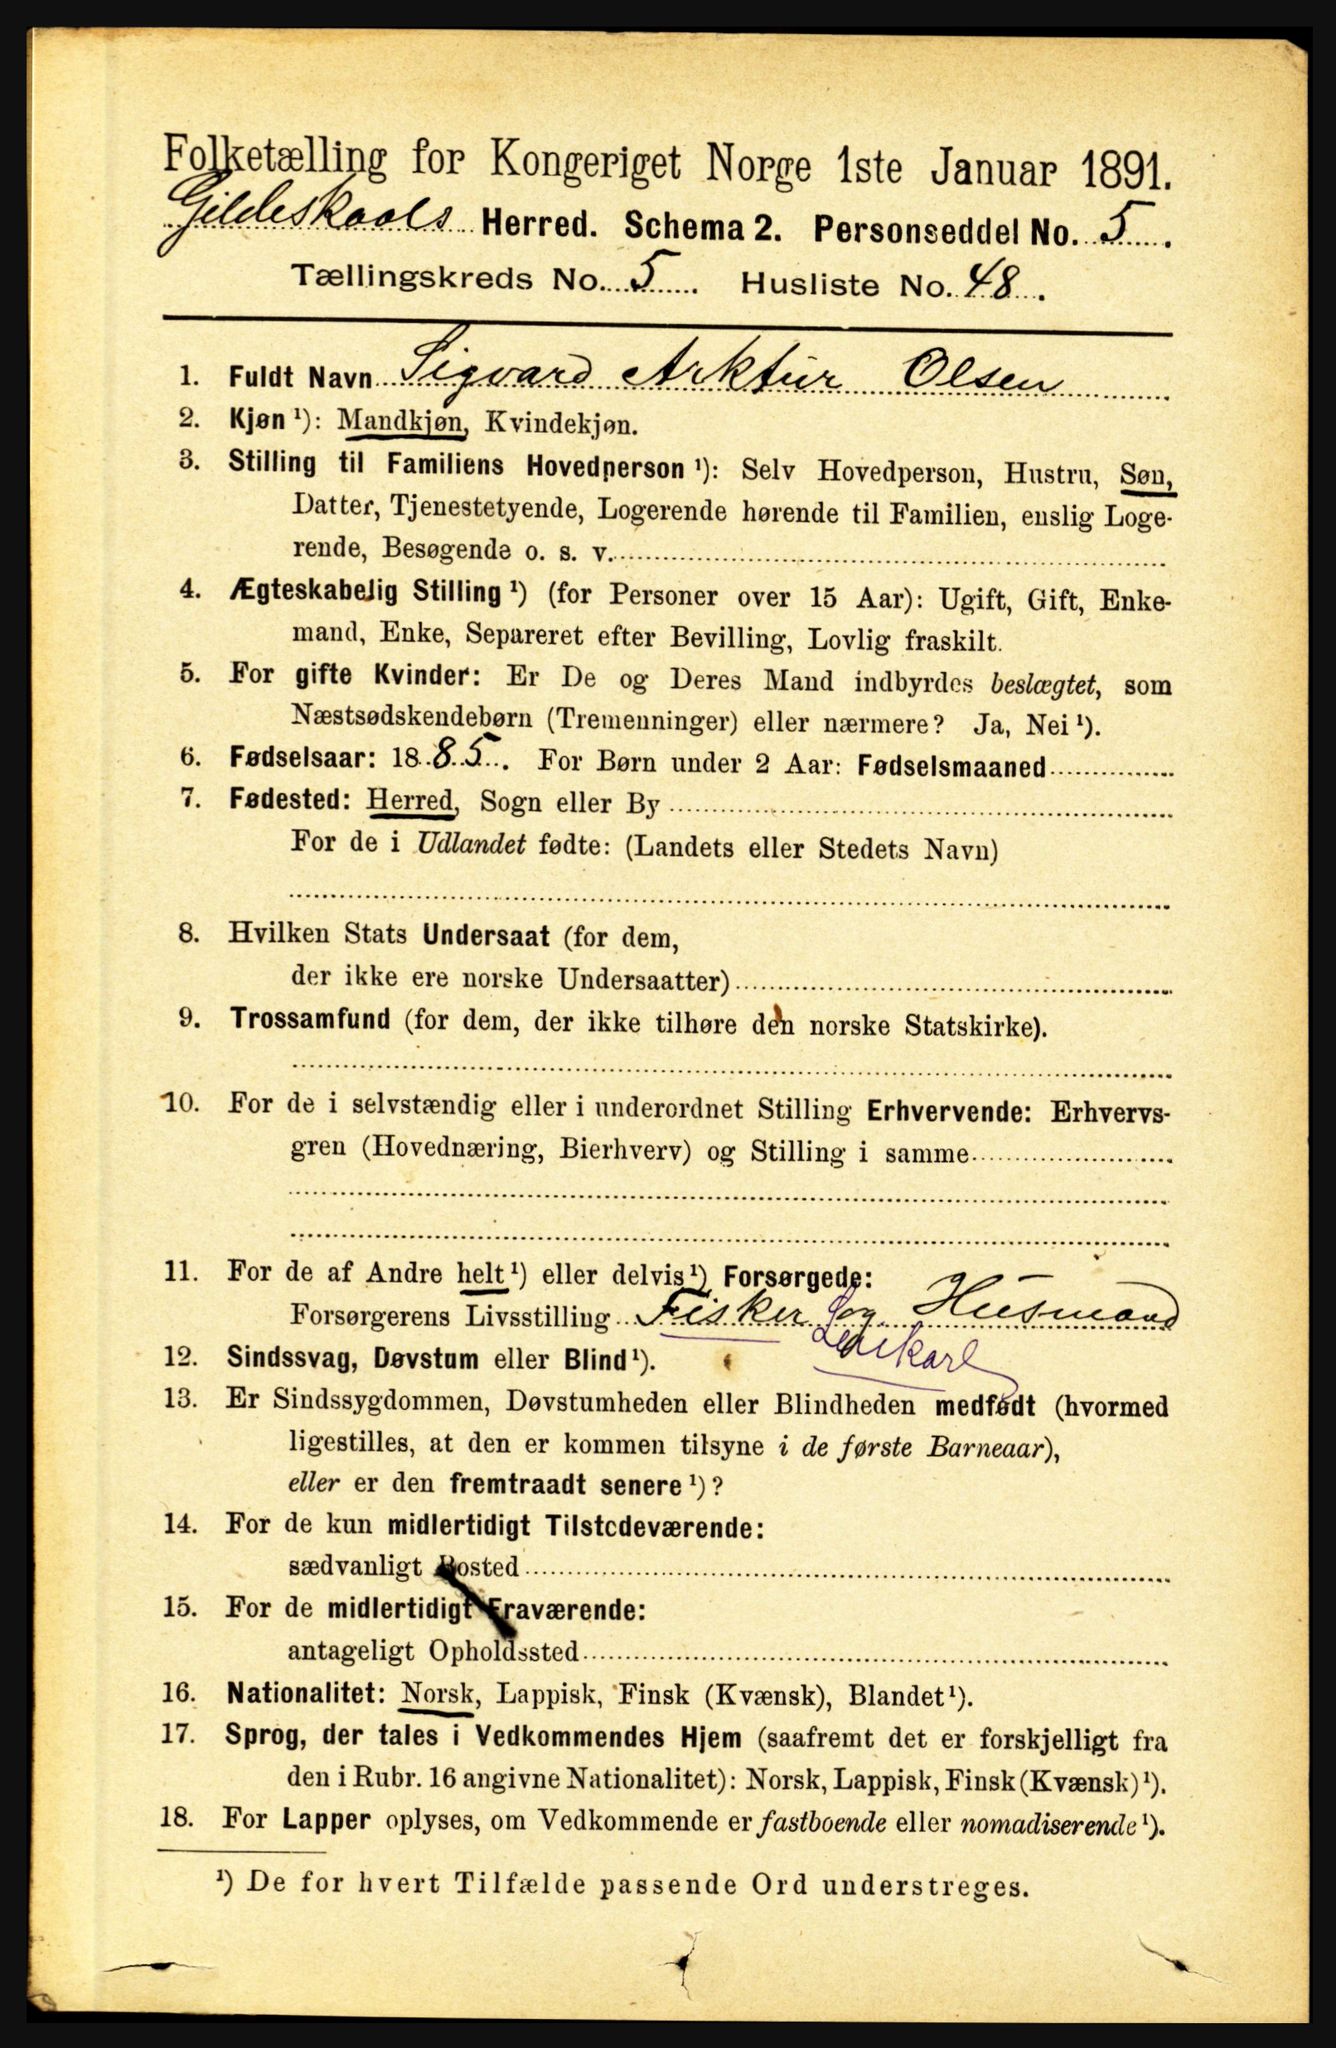 Folketælling for Kongeriget Norge 1ste Januar 1891.
Gildeskaals Herred. Schema 2. Personseddel No. 5.
Tællingskreds No. 5. Husliste No. 48.
1. Fuldt Navn Sigvard Arktur Olsen
2. Kjøn ¹): Mandkjøn, Kvindekjøn.
3. Stilling til Familiens Hovedperson ¹): Selv Hovedperson, Hustru, Søn,
Datter, Tjenestetyende, Logerende hørende til Familien, enslig Loge-
rende, Besøgende o. s. v.
4. Ægteskabelig Stilling ¹) (for Personer over 15 Aar): Ugift, Gift, Enke-
mand, Enke, Separeret efter Bevilling, Lovlig fraskilt.
5. For gifte Kvinder: Er De og Deres Mand indbyrdes beslægtet, som
Næstsødskendebørn (Tremenninger) eller nærmere? Ja, Nei ¹).
6. Fødselsaar: 1885. For Børn under 2 Aar: Fødselsmaaned
7. Fødested: Herred, Sogn eller By
For de i Udlandet fødte: (Landets eller Stedets Navn)
8. Hvilken Stats Undersaat (for dem,
der ikke ere norske Undersaatter)
9. Trossamfund (for dem, der ikke tilhøre den norske Statskirke).
10. For de i selvstændig eller i underordnet Stilling Erhvervende: Erhvervs-
gren (Hovednæring, Bierhverv) og Stilling i samme
11. For de af Andre helt ¹) eller delvis ¹) Forsørgede:
Forsørgerens Livsstilling Fisker og Husmand
12. Sindssvag, Døvstum eller Blind ¹).
13. Er Sindssygdommen, Døvstumheden eller Blindheden medfødt (hvormed
ligestilles, at den er kommen tilsyne i de første Barneaar),
eller er den fremtraadt senere ¹)?
14. For de kun midlertidigt Tilstedeværende:
sædvanligt Bosted
15. For de midlertidigt Fraværende:
antageligt Opholdssted
16. Nationalitet: Norsk, Lappisk, Finsk (Kvænsk), Blandet ¹).
17. Sprog, der tales i Vedkommendes Hjem (saafremt det er forskjelligt fra
den i Rubr. 16 angivne Nationalitet): Norsk, Lappisk, Finsk (Kvænsk) ¹).
18. For Lapper oplyses, om Vedkommende er fastboende eller nomadiserende ¹).
¹) De for hvert Tilfælde passende Ord understreges.